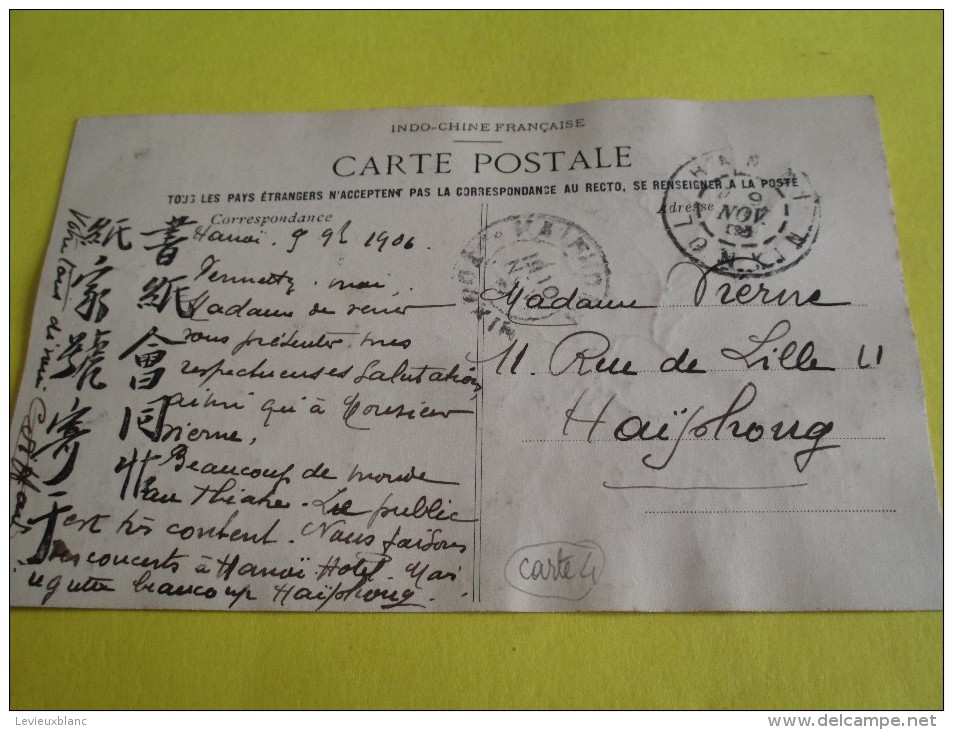 INDO-CHINE FRANÇAISE
CARTE POSTALE
TOUS LES PAYS ÉTRANGERS N'ACCEPTENT PAS LA CORRESPONDANCE AU RECTO, SE RENSEIGNER A LA POSTE
Correspondance
Hanoï. 9 9h 1906.
Permettez-moi,
Madame de venir
vous présenter mes
respectueuses salutations,
ainsi qu'à Monsieur
Vierne,
Beaucoup de monde
au théatre. Le public
est très content. Nous faisons
des concerts à Hanoï-Hotel. Mais
regrette beaucoup Haïphong.
書紙會同
紙家號寄
Adresse
HANOI
NOV
TONKIN
Madame Vierne
11. Rue de Lille 11
Haïphong
carte 4
Levieuxblanc
www.delcampe.net